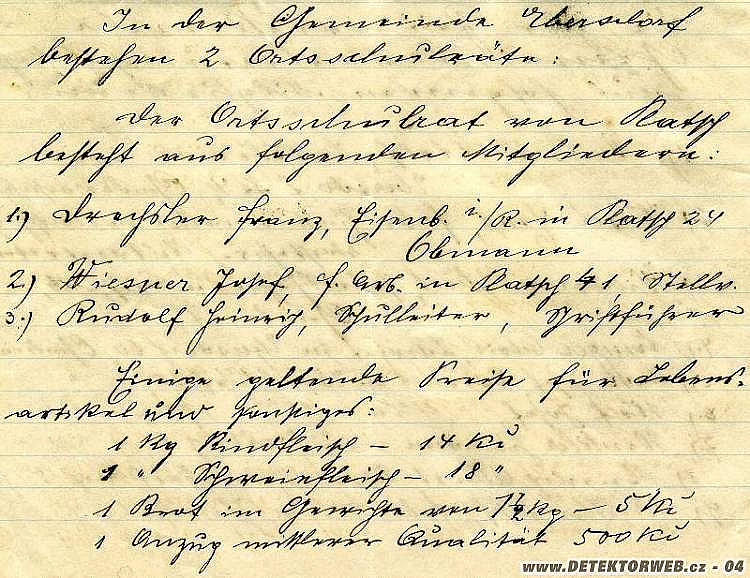 In der Gemeinde Ebersdorf
bestehen 2 Ortsschulräte:
Der Ortsschulrat von Ratsch
besteht aus folgenden Mitgliedern:
1.) Drechsler Franz, Eisenb. i./R. in Ratsch 24
Obmann
2.) Wiesner Josef, f. Arb. in Ratsch 41, Stellv.
3.) Rudolf Heinrich, Schulleiter, Schriftführer
Einige geltende Preise für Lebens-
artikel und sonstiges:
1 Kg Rindfleisch – 14 Kč
1 " Schweinfleisch – 18 "
1 Brot im Gewichte von 1½ kg – 5 Kč
1 Anzug mittlerer Qualität 500 Kč
www.DETEKTORWEB.cz - 04